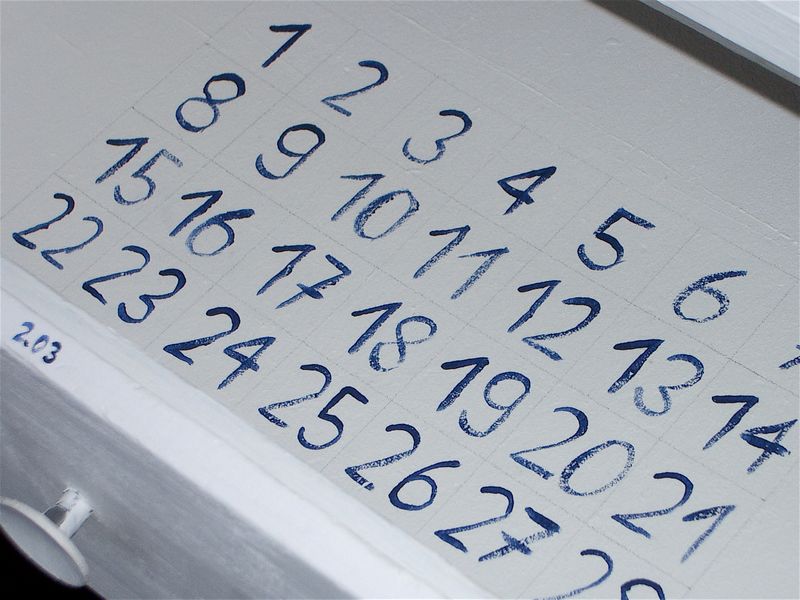 1 2 3 4 5 6
8 9 10 11 12 13 14
15 16 17 18 19 20 21
22 23 24 25 26 27
2.03